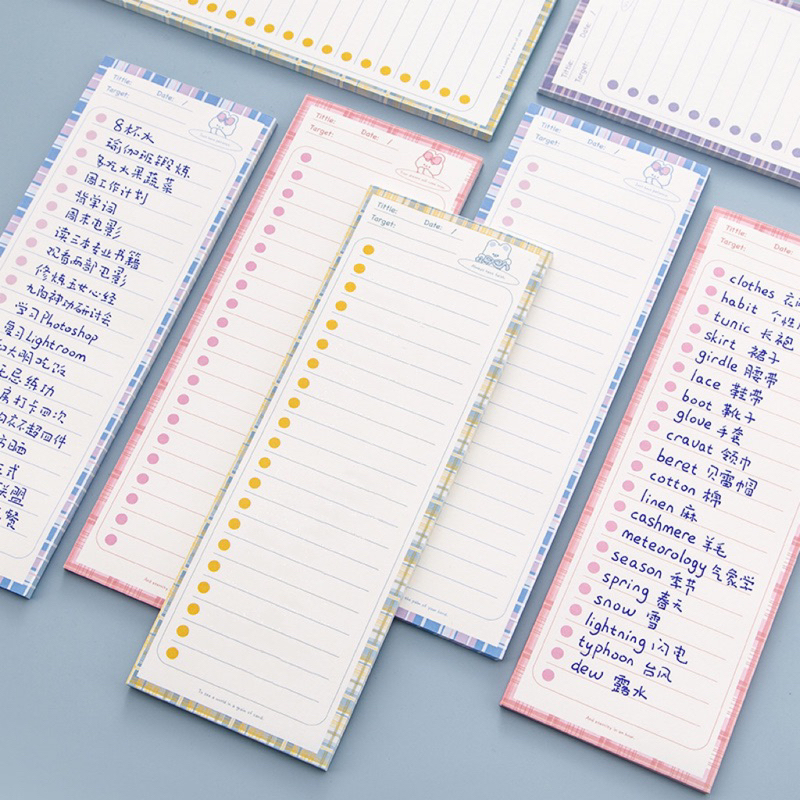 Tittle:
Date: /
Target:
8杯水
瑜伽班锻炼
多吃水果蔬菜
周工作计划
背单词
周末电影
读三本专业书籍
观看两部电影
修炼玉女心经
九阳神功研讨会
学习Photoshop
复习Lightroom
Tittle:
Date: /
Target:
Tittle:
Date: /
Target:
To see a world in a grain of sand.
Tittle:
Date: /
Target:
Tittle:
Target:
clothes
habit 个性
tunic 长袍
skirt 裙子
girdle 腰带
lace 鞋带
boot 靴子
glove 手套
cravat 领巾
beret 贝雷帽
cotton 棉
linen 麻
cashmere 羊毛
meteorology 气象学
season 季节
spring 春天
snow 雪
lightning 闪电
typhoon 台风
dew 露水
Tittle:
Date: /
Target: